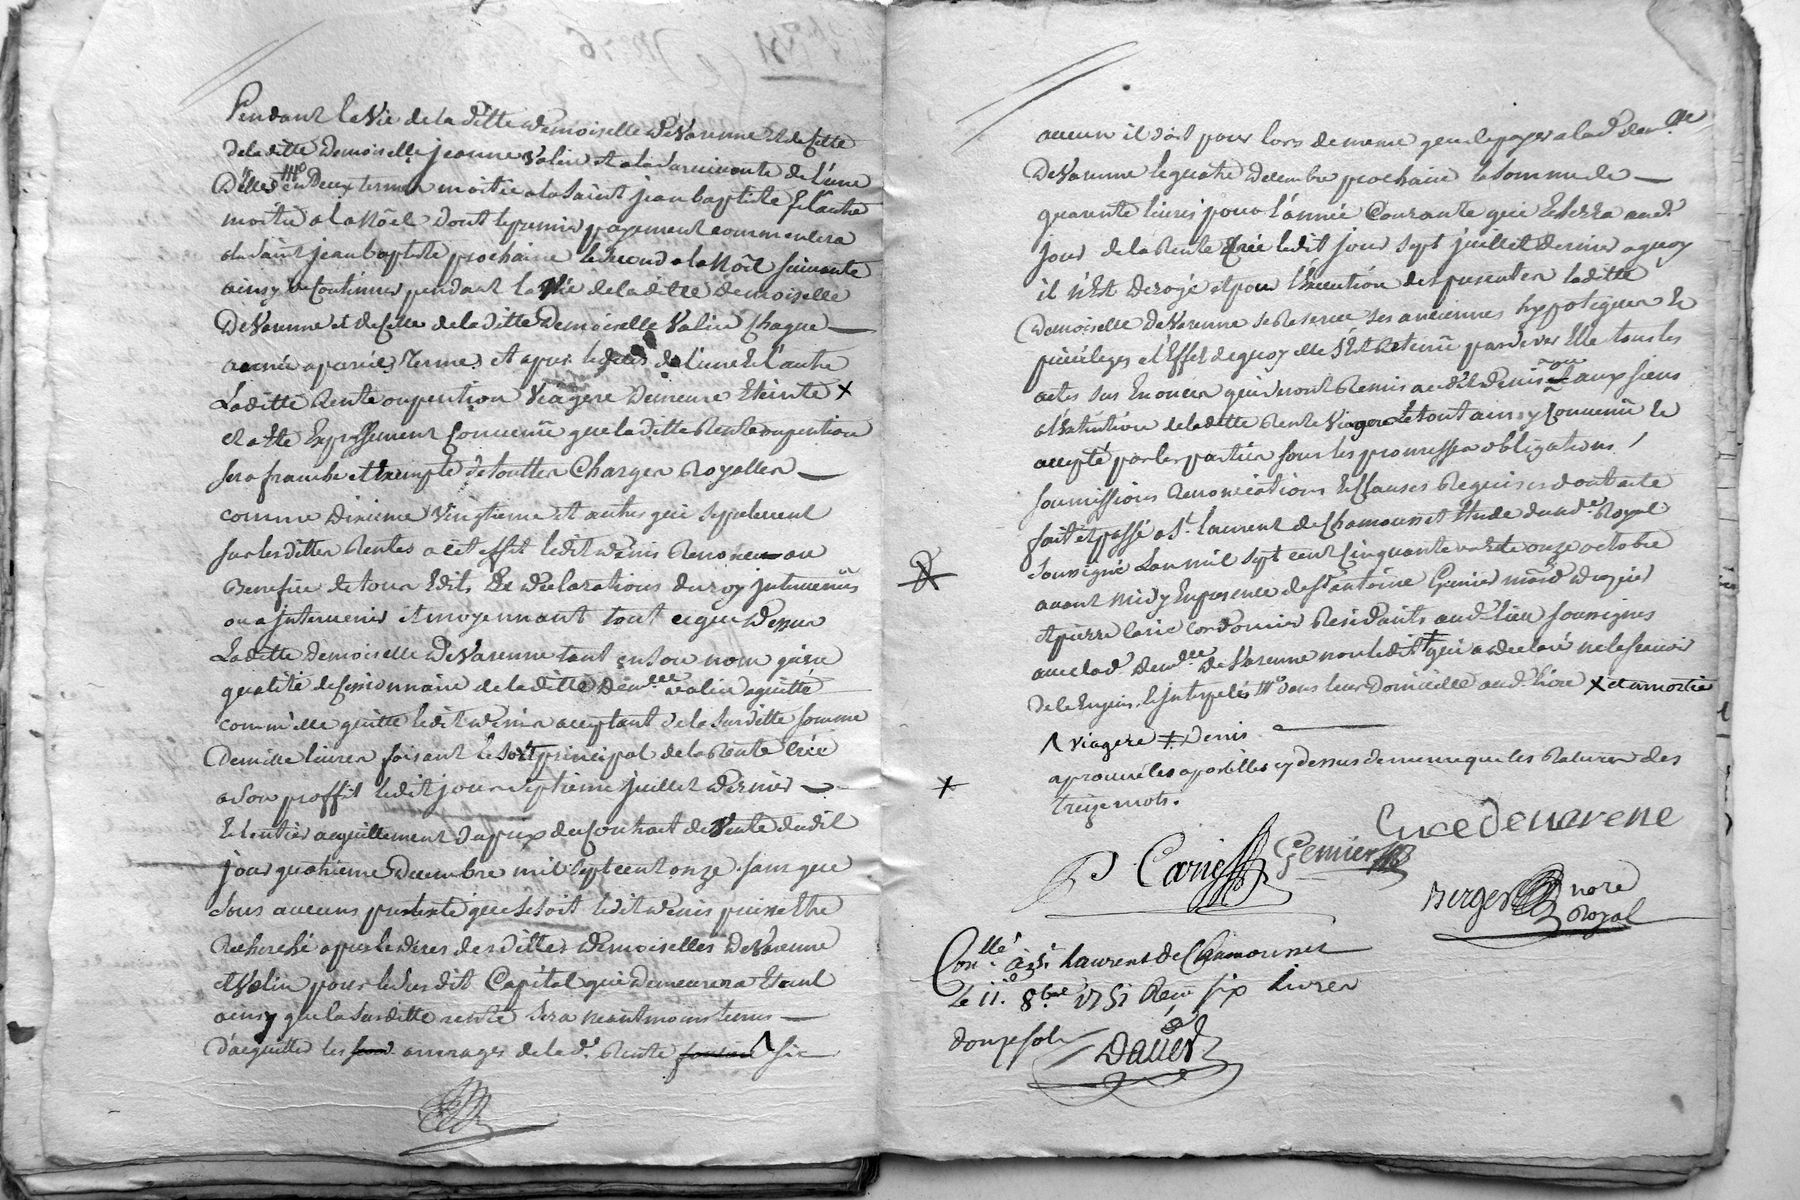 Pendant la Vie de la ditte demoiselle de Varenne et de Celle
de la ditte demoiselle jeanne Valin et a la Survivante de l'une
D'elles en deux termes moitié a la Saint jean baptiste et l'autre
moitié a la Nöel dont le premier payement commencera
a la Saint jean baptiste prochaine le second a la Nöel suivante
ainsy a Continuer pendant la Vie de la ditte demoiselle
De Varenne et de Celle de la ditte Demoiselle Valin Chaque
année a pareils Termes et apres le deces de l'une et l'autre
La ditte Rente ou pention Viagere Demeure Eteinte X
et a Eté Expressement Convenu que la ditte Rente ou pention
sera franche et Exempte de touttes Charges Royalles
comme Dixieme Vingtieme et autres qui se prelevent
sur les dittes Rentes a cet effet ledit Denis Renonce au
Benefice de tous Edits Et declarations du roy intervenus
ou a intervenir et moyennant tout ce que dessus
La ditte Demoiselle De Varenne tant en son nom qu'en
qualité de Cessionnaire de la ditte Demlle Valin a quitte
comm'elle quitte ledit denis acceptant de la Susditte somme
De mille livres faisant le Sort principal de la Rente Créé
a Son proffit ledit jour septieme juillet dernier
Et l'entier acquittement du prix du Contrat de Vente dudit
jour quatrieme decembre mil sept cent onze sans que
Sous aucuns pretexte que ce soit ledit denis puisse Etre
Recherché apres le deces des dittes demoiselles De Varenne
et Valin pour le susdit Capital qui demeurera Etaint
ainsy que la Susditte rente sera neantmoins tenus
d'acquitter les arrerages de la d. Rente si
aucun il doit pour lors de meme que de payer a la d. demlle
De Varenne le quatre decembre prochain la somme de
quarente livres pour l'année Courante qui Echerra aud.
jour de la Rente Créé ledit jour sept juillet dernier a quoy
il n'Est derogé et pour l'execution des presentes laditte
Demoiselle De Varenne se Reserve ses anciennes hypoteques et
privileges a l'Effet de quoy elle s'Est Retenu pardever Elle tous les
actes sus Enoncés qui seront Remis audit Denis ou aux siens
a l'extintion de la ditte Rente Viagere le tout ainsy Convenu et
accepté par les parties sous les promesses obligations
soumissions Renonciations et Clauses Requises dont acte
fait et passé a St laurent de Chamousset Etude du nore Royal
soussigné L'an mil sept cent Cinquante un et le onze octobre
avant midy En presence de St antoine Genier
et pierre Carié Cordonnier Residants aud. lieu soussignés
avec lad. demlle De Varenne non ledit qui a declaré ne le scavoir
de ce Enquis et interpelés dans leur Domicille aud. lieu X et amortie
Λ viagere ‡ Denis
aprouvé les apostilles cy dessus de meme que les Ratures des
treize mots.
Lucedevarene
P Carié Genier
Berger nore
Royal
Conllé a St Laurent de Chamousset
le 11. 8bre 1751 Reçu six livres
douze sols
Dauer